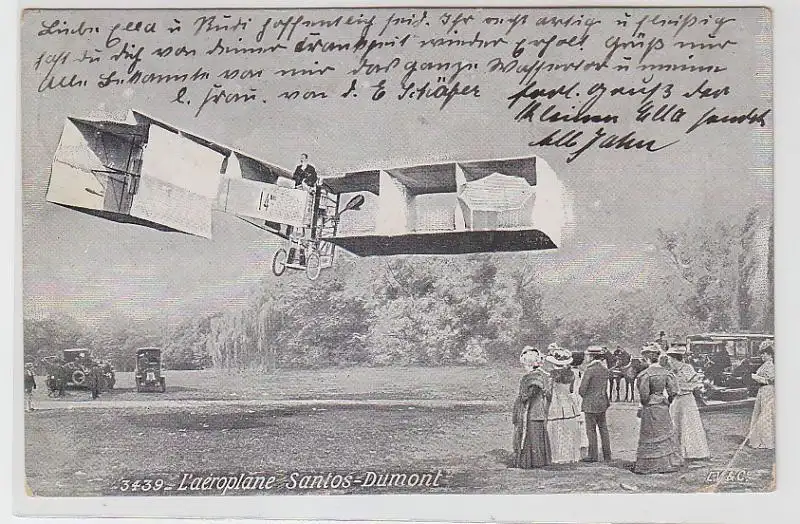 Liebe Ella u Rudi hoffentlich seid. Ihr recht artig u fleißig
hast du dich von deiner Krankheit wieder erholt. Grüß nur
Alle Bekannte von mir das ganze u meine
l. Frau. von d. E Schäfer herl. Gruß der
kleinen Ella sendet
Jahn
14
3439_ L'aéroplane Santos-Dumont